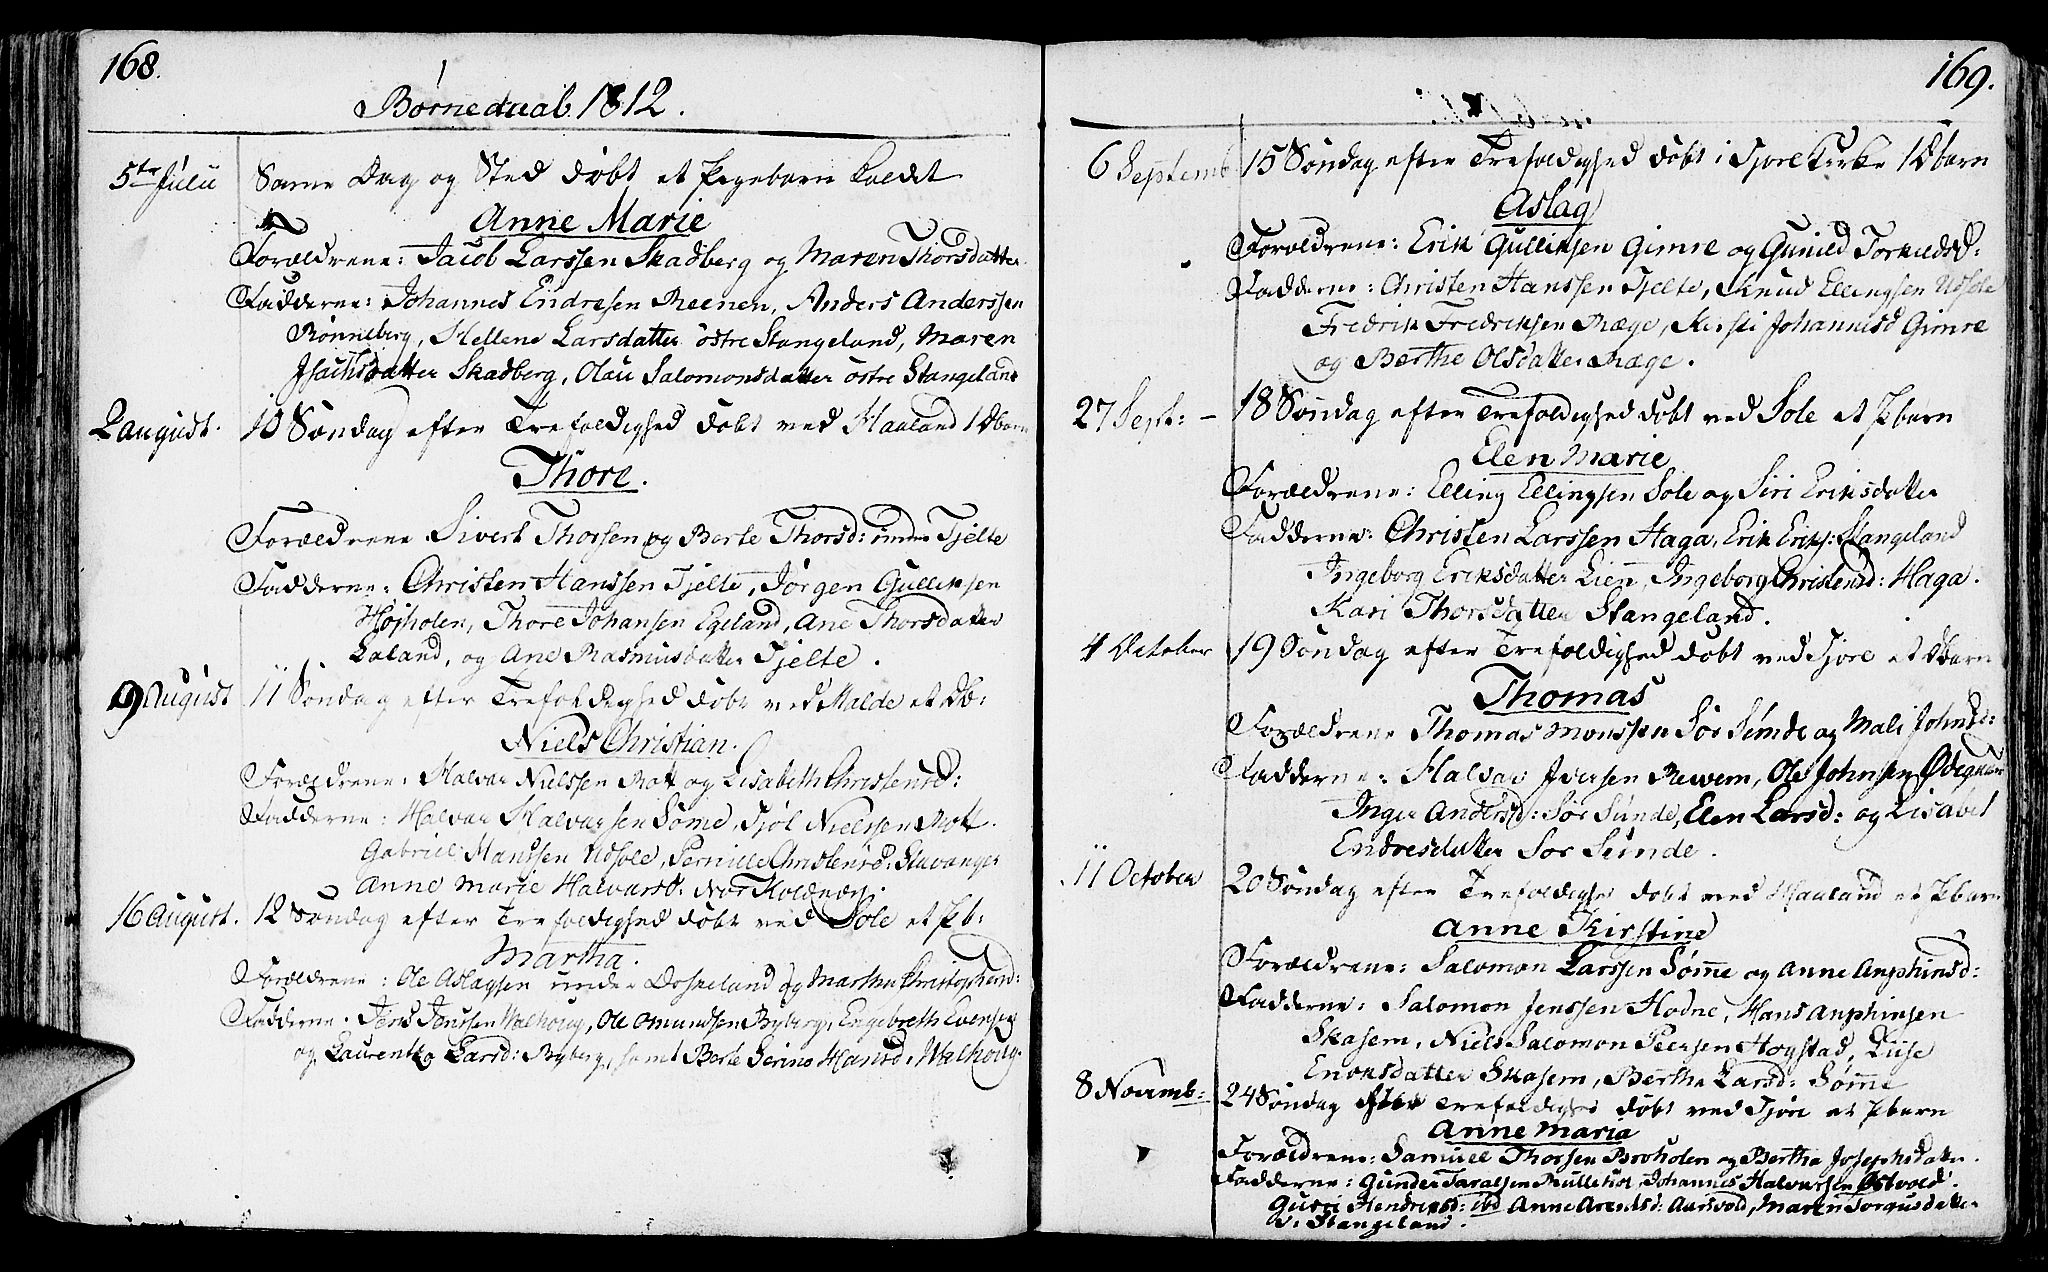 168.
Børnedaab 1812.
5te Julii Same Dag og Sted døbt et Pigebarn kaldet
Anne Marie
Forældrene: Jacob Larssen Skadberg og Maren Thorsdatter
Fadderne: Johannes Endresen Reenen, Anders Anderssen
Rønneberg, Hellene Larsdatter østre Stangeland, Maren
Isachsdatter Skadberg, Olau Salomonsdatter østre Stangeland
2 august. 10 Søndag efter Trefoldighed døbt ved Haaland 1 Dbarn
Thore.
Forældrene Sivert Thorsen og Berte Thorsd: Tjelte
Fadderne: Christen Hanssen Tjelte, Jørgen Gulliksen
Højholen, Thore Johansen Egeland, Ane Thorsdatter
Laland, og Ane Rasmusdatter Tjelte.
9 August 11 Søndag efter Trefoldighed døbt ved Malde et Db:
Niels Christian.
Forældrene: Halvar Nielssen Rott og Lisabeth Christensd:
Fadderne: Halvar Halvarsen Sømë, Tjøl Nielssen Rott.
Gabriel Manssen Udsole, Pernille Christensd: Stavanger
Anne Marie Halvarsd:
16 August. 12 Søndag efter Trefoldighed døbt ved Sole et Pb:
Martha.
Forældrene: Ole Aslagsen under Doskeland og Martha Christophersd:
Fadderne. Jens Jenssen Walhoug, Ole Omundsen Byberg, Engebreth Evensen
og Laurentza Larsd: Byberg, samt Berte Serine Hansd: Walhoug.
169.
6 Septemb 15 Søndag efter Trefoldighed døbt i Tjore Kirke 1 Dbarn
Aslag
Forældrene: Erik Gulliksen Gimre og Gunild Torkildsd:
Fadderne: Christen Hanssen Tjelte, Knud Ellingsen Udsole
Fredrik Fredriksen Ræge, Kirsti Johannesd Gimre
og Berthe Olsdatter Ræge.
27 Sept: – 18 Søndag efter Trefoldighed døbt ved Sole et Pbarn
Elen Marie
Forældrene: Elling Ellingsen Sole og Siri Eriksdatter
Fadderne: Christen Larssen Haga, Erik Eriks: Stangeland
Ingeborg Eriksdatter Lien, Ingeborg Christensd: Haga.
Kari Thorsdatter Stangeland.
4 October 19 Søndag efter Trefoldighed døbt ved Tjore et Dbarn
Thomas
Forældrene Thomas Monssen Sør Sunde og Mali Johnsd:
Fadderne: Halvar Iversen Revem, Ole Johnsen
Inger Andersd: Sør Sunde, Elen Larsd: og Lisabet
Endresdatter Sør Sunde.
11 October 20 Søndag efter Trefoldighed døbt ved Haaland et Pbarn
Anne Kirstine
Forældrene: Salomon Larssen Sømme og Anne Anphinsd:
Fadderne: Salomon Jenssen Hodne, Hans Anphinsen
Skasem, Niels Salomon Peersen Hogstad, Lise
Enoksdatter Skasem, Bertha Larsd: Sømme
8 Novemb: 24 Søndag efter Trefoldighed døbt ved Tjore et Pbarn
Anne Maria
Forældrene: Samuel Thorsen Broholen og Bertha Josephsdatter.
Fadderne: Gunder Taralsen Mullehol, Johannes Halvarsen Østvold.
Guri Hendriksd: ibd Anne Arentsd: Aarsvold, Maren Torgusdatter
S: Stangeland.